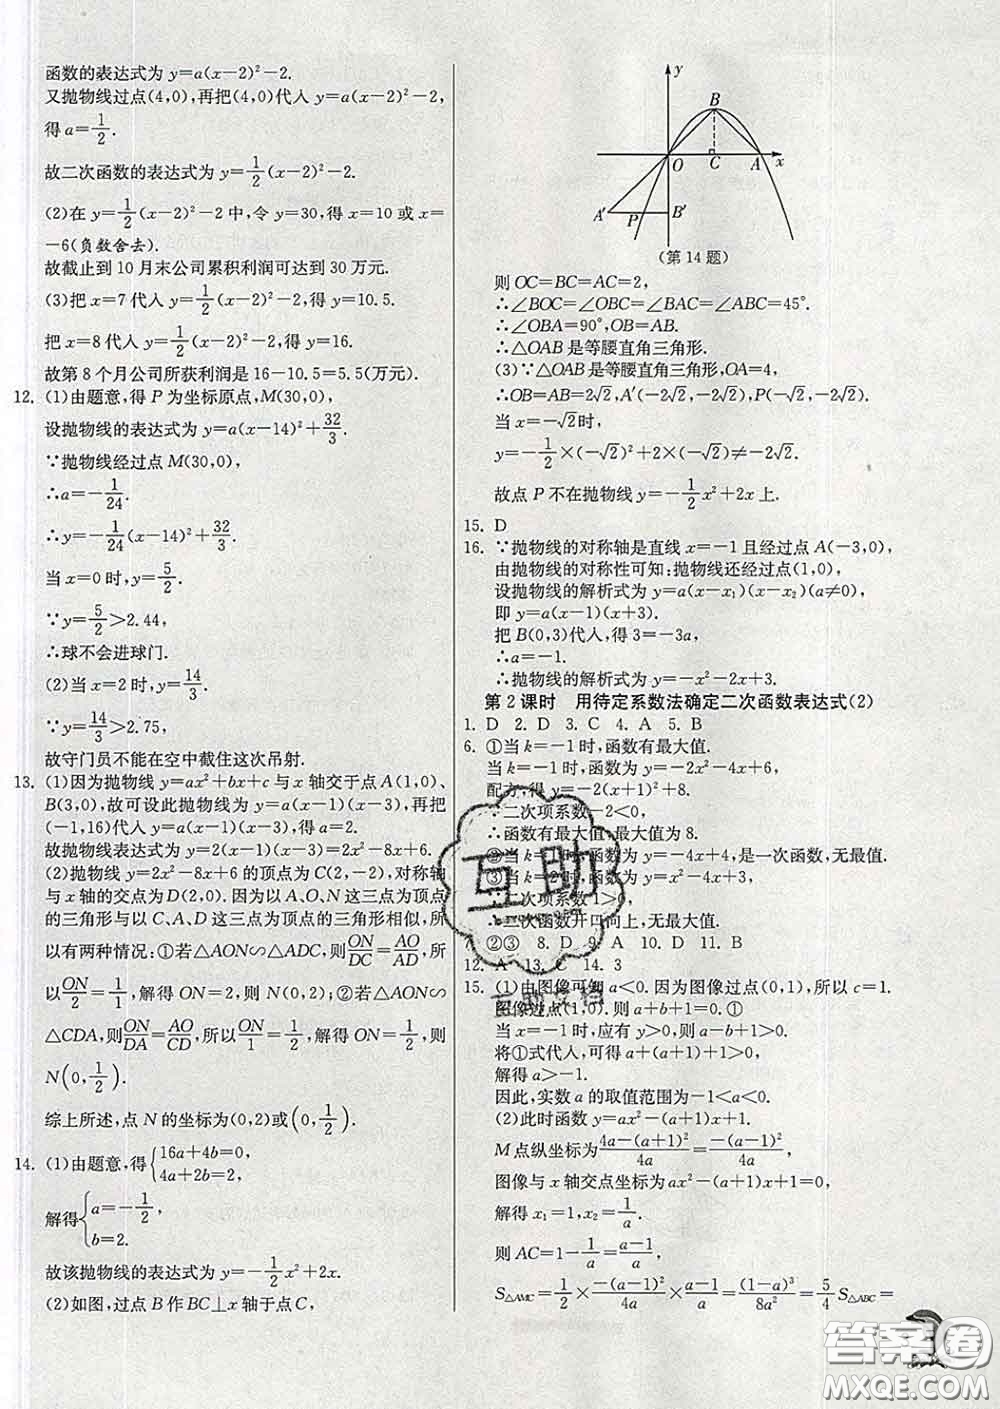 函数的表达式为 y=a(x−2)²−2.
又抛物线过点(4,0),再把(4,0)代入 y=a(x−2)²−2,
得 a=1/2.
故二次函数的表达式为 y=1/2(x−2)²−2.
(2)在 y=1/2(x−2)²−2 中,令 y=30,得 x=10 或 x=
−6(负数舍去).
故截止到 10 月末公司累积利润可达到 30 万元.
(3)把 x=7 代入 y=1/2(x−2)²−2,得 y=10.5.
把 x=8 代入 y=1/2(x−2)²−2,得 y=16.
故第 8 个月公司所获利润是 16−10.5=5.5(万元).
12. (1)由题意,得 P 为坐标原点,M(30,0),
设抛物线的表达式为 y=a(x−14)²+32/3.
∵抛物线经过点 M(30,0),
∴a=−1/24.
∴y=−1/24(x−14)²+32/3.
当 x=0 时,y=5/2.
∵y=5/2>2.44,
∴球不会进球门.
(2)当 x=2 时,y=14/3.
∵y=14/3>2.75,
故守门员不能在空中截住这次吊射.
13. (1)因为抛物线 y=ax²+bx+c 与 x 轴交于点 A(1,0)、
B(3,0),故可设此抛物线为 y=a(x−1)(x−3),再把
(−1,16)代入 y=a(x−1)(x−3),得 a=2.
故抛物线表达式为 y=2(x−1)(x−3)=2x²−8x+6.
(2)抛物线 y=2x²−8x+6 的顶点为 C(2,−2),对称轴
与 x 轴的交点为 D(2,0). 因为以 A、O、N 这三点为顶点
的三角形与以 C、A、D 这三点为顶点的三角形相似,所
以有两种情况:①若△AON∽△ADC,则ON/DC=AO/AD,所
以ON/2=1/1,解得 ON=2,则 N(0,2);②若△AON∽
△CDA,则ON/DA=AO/CD,所以ON/1=1/2,解得 ON=1/2,则
N(0,1/2).
综上所述,点 N 的坐标为(0,2)或(0,1/2).
14. (1)由题意,得{16a+4b=0,
4a+2b=2,
解得{a=−1/2,
b=2.
故该抛物线的表达式为 y=−1/2x²+2x.
(2)如图,过点 B 作 BC⊥x 轴于点 C,
y
B
O C A x
A′ P B′
(第 14 题)
则 OC=BC=AC=2,
∴∠BOC=∠OBC=∠BAC=∠ABC=45°.
∴∠OBA=90°,OB=AB.
∴△OAB 是等腰直角三角形.
(3)∵△OAB 是等腰直角三角形,OA=4,
∴OB=AB=2√2,A′(−2√2,−2√2),P(−√2,−2√2).
当 x=−√2时,
y=−1/2×(−√2)²+2×(−√2)≠−2√2.
故点 P 不在抛物线 y=−1/2x²+2x 上.
15. D
16. ∵抛物线的对称轴是直线 x=−1 且经过点 A(−3,0),
由抛物线的对称性可知:抛物线还经过点(1,0),
设抛物线的解析式为 y=a(x−x₁)(x−x₂)(a≠0),
即 y=a(x−1)(x+3).
把 B(0,3)代入,得 3=−3a,
∴a=−1.
∴抛物线的解析式为 y=−x²−2x+3.
第 2 课时 用待定系数法确定二次函数表达式(2)
1. D 2. D 3. C 4. A 5. B
6. ①当 k=−1 时,函数有最大值.
当 k=−1 时,函数为 y=−2x²−4x+6,
配方,得 y=−2(x+1)²+8.
∵二次项系数−2<0,
∴函数有最大值,最大值为 8.
②当 k=1 时,函数为 y=−4x+4,是一次函数,无最值.
③当 k=2 时,函数为 y=x²−4x+3,
∵二次项系数 1>0,
∴二次函数开口向上,无最大值.
7. ②③ 8. D 9. A 10. D 11. B
12. A 13. C 14. 3
15. (1)由图像可知 a<0. 因为图像过点(0,1),所以 c=1.
图像过点(1,0). 则 a+b+1=0. ①
当 x=−1 时,应有 y>0,则 a−b+1>0.
将①式代入,可得 a+(a+1)+1>0,
解得 a>−1.
因此,实数 a 的取值范围为−1<a<0.
(2)此时函数 y=ax²−(a+1)x+1.
M 点纵坐标为4a−(a+1)²/4a=−(a−1)²/4a,
图像与 x 轴交点坐标为 ax²−(a+1)x+1=0,
解得 x₁=1,x₂=1/a.
则 AC=1−1/a=a−1/a,
S△AMC=1/2×−(a−1)²/4a×a−1/a=(1−a)³/8a²=5/4 S△ABC=
互助
互助文档
答案圈
MXQE.COM